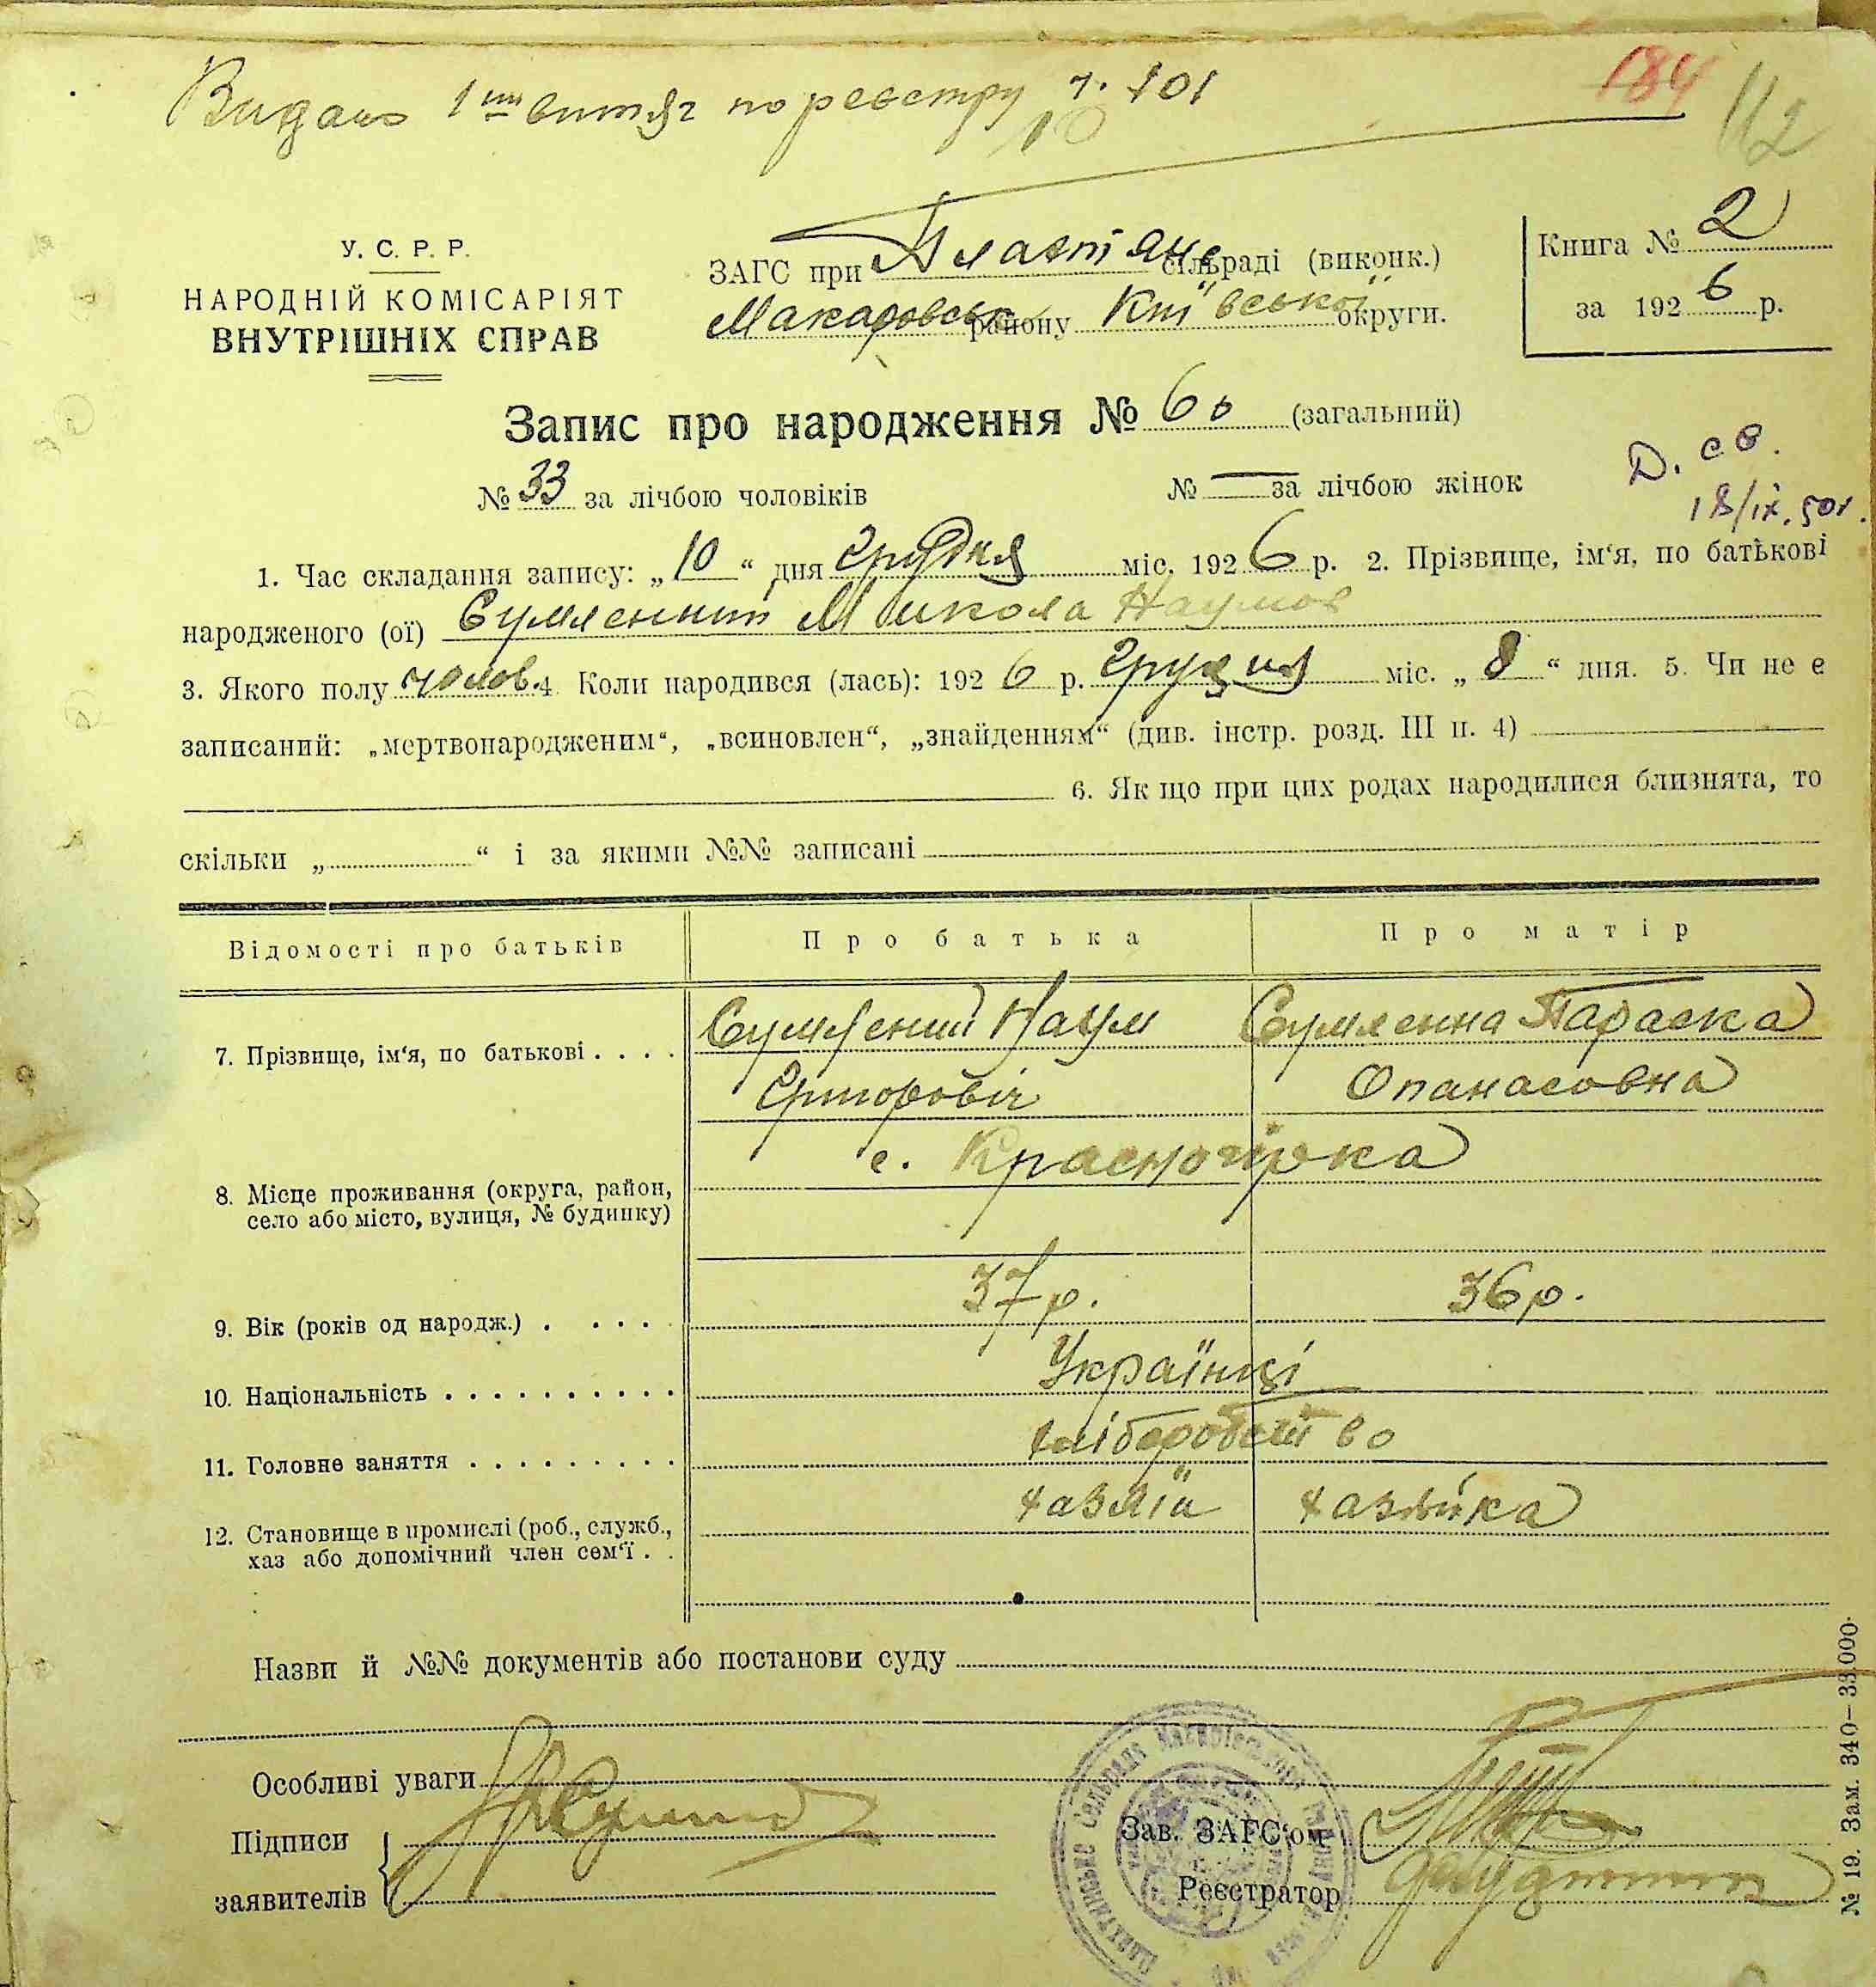 Видано 1ший витяг по реєстру ч. 101
10
184
112
У. С. Р. Р.
НАРОДНІЙ КОМІСАРІЯТ
ВНУТРІШНІХ СПРАВ
ЗАГС при сільраді (виконк.)
Макаровськ району Київської округи.
Книга № 2
за 1926 р.
Запис про народження № 60 (загальний)
№ 33 за лічбою чоловіків № — за лічбою жінок
Д. св.
18/ІХ. 50г.
1. Час складання запису: „10“ дня грудня міс. 1926 р. 2. Прізвище, ім‘я, по батькові
народженого (ої) Сумленний Микола Наумов
3. Якого полу чолов. 4. Коли народився (лась): 1926 р. грудня міс. „8“ дня. 5. Чи не є
записаний: „мертвонародженим“, „всиновлен“, „знайденням“ (див. інстр. розд. III п. 4)
6. Як що при цих родах народилися близнята, то
скільки „ “ і за якими №№ записані
Відомості про батьків Про батька Про матір
7. Прізвище, ім‘я, по батькові . . . . Сумлений Наум Сумленна Параска
Опанасовна
с. Красногірка
8. Місце проживання (округа, район,
село або місто, вулиця, № будинку)
9. Вік (років од народж.) . . . . 37 р. 36 р.
10. Національність . . . . . . . . . . Українці
11. Головне заняття . . . . . . . . . хліборобство
12. Становище в промислі (роб., служб., хазяїн хазяйка
хаз або допомічний член сем‘ї . .
Назви й №№ документів або постанови суду
Особливі уваги
Підписи
заявителів
Зав. ЗАГС‘ом
Реєстратор
№ 19. Зам. 340—33.000.